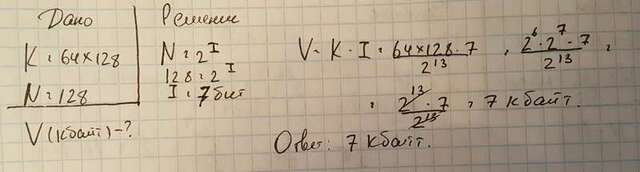 Дано
K = 64×128
N = 128
V(Кбайт) - ?
Решение
N = 2^I
128 = 2^I
I = 7 бит
V = K · I = 64×128·7 / 2^13 = 2^6 · 2^7 · 7 / 2^13 =
= 2^13 · 7 / 2^13 = 7 Кбайт.
Ответ: 7 Кбайт.